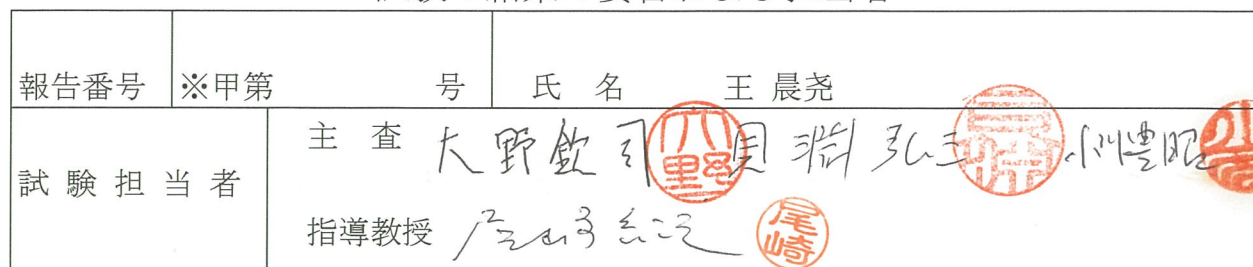 報告番号 ※甲第 号 氏 名 王 晨尧
試 験 担 当 者
主 査 大野欽司 大野 貝淵弘三 貝淵 小川豊昭
指導教授 尾崎紀夫 尾崎